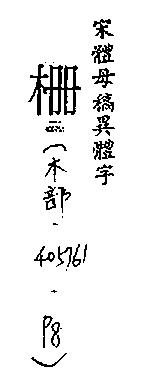 宋體母稿異體字
柵
（木部．405761．P8）